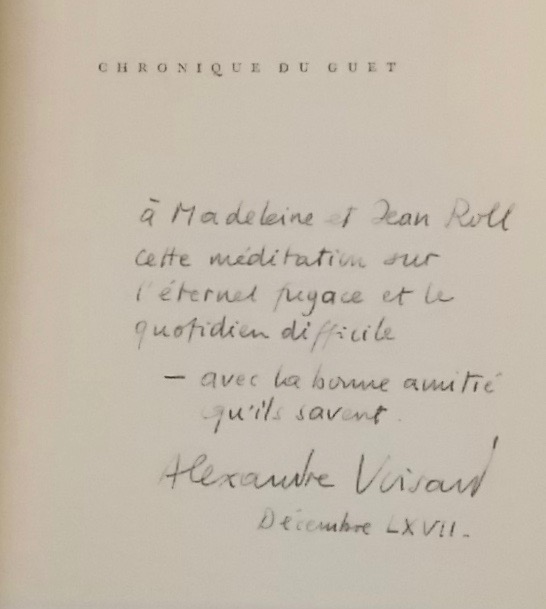 CHRONIQUE DU GUET
à Madeleine et Jean Roll
cette méditation sur
l'éternel fugace et le
quotidien difficile
— avec la bonne amitié
qu'ils savent.
Alexandre Voisard
Décembre LXVII.